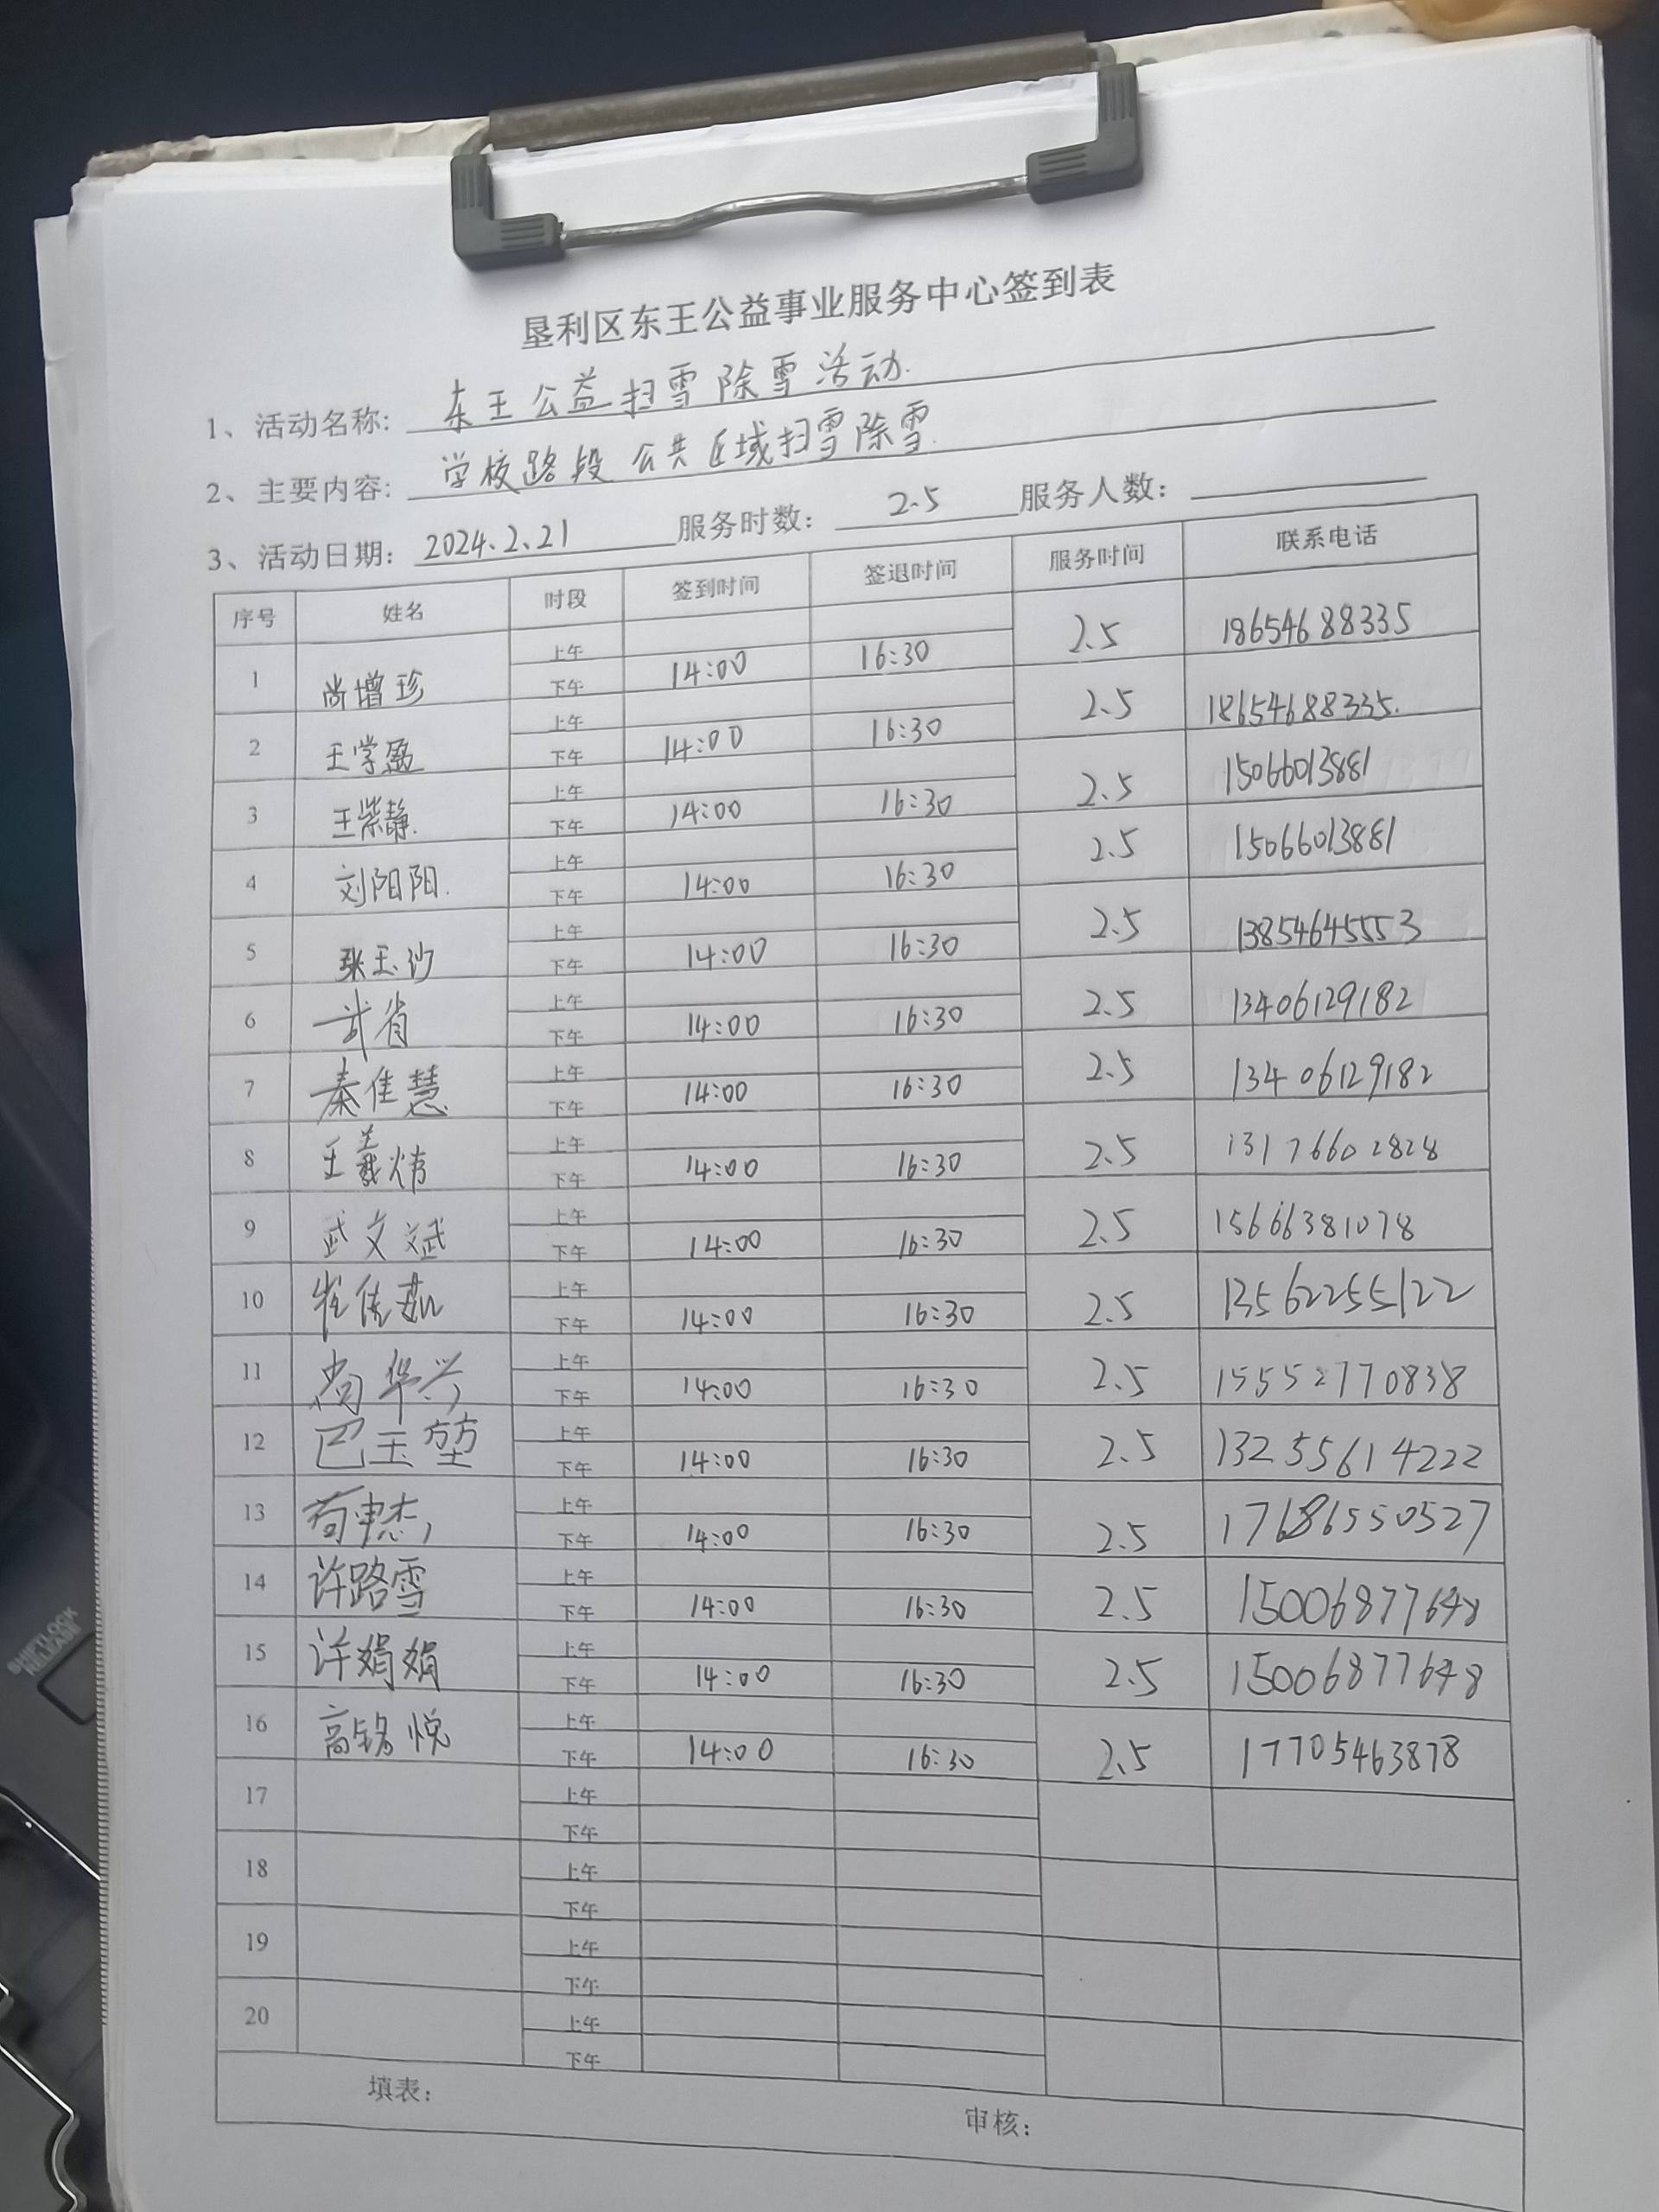 垦利区东王公益事业服务中心签到表
1、活动名称: 东王公益扫雪除雪活动.
2、主要内容: 学校路段公共区域扫雪除雪.
3、活动日期: 2024.2.21 服务时数: 2.5 服务人数:
序号 姓名 时段 签到时间 签退时间 服务时间 联系电话
1 尚增珍 上午 下午 14:00 16:30 2.5 18654688335
2 王学盈 上午 下午 14:00 16:30 2.5 18654688335.
3 王紫静. 上午 下午 14:00 16:30 2.5 15066013881
4 刘阳阳. 上午 下午 14:00 16:30 2.5 15066013881
5 张玉沙 上午 下午 14:00 16:30 2.5 13854645553
6 武省 上午 下午 14:00 16:30 2.5 13406129182
7 秦佳慧 上午 下午 14:00 16:30 2.5 13406129182
8 王羲炜 上午 下午 14:00 16:30 2.5 13176602828
9 武文斌 上午 下午 14:00 16:30 2.5 15666381078
10 上午 下午 14:00 16:30 2.5 13562255122
11 尚华兴 上午 下午 14:00 16:30 2.5 15552770838
12 巴玉堃 上午 下午 14:00 16:30 2.5 13255614222
13 上午 下午 14:00 16:30 2.5 17686550527
14 许路雪 上午 下午 14:00 16:30 2.5 15006877648
15 许娟娟 上午 下午 14:00 16:30 2.5 15006877648
16 高铭悦 上午 下午 14:00 16:30 2.5 17705463878
17 上午 下午
18 上午 下午
19 上午 下午
20 上午 下午
填表: 审核:
SHIFT LOCK
RELEASE